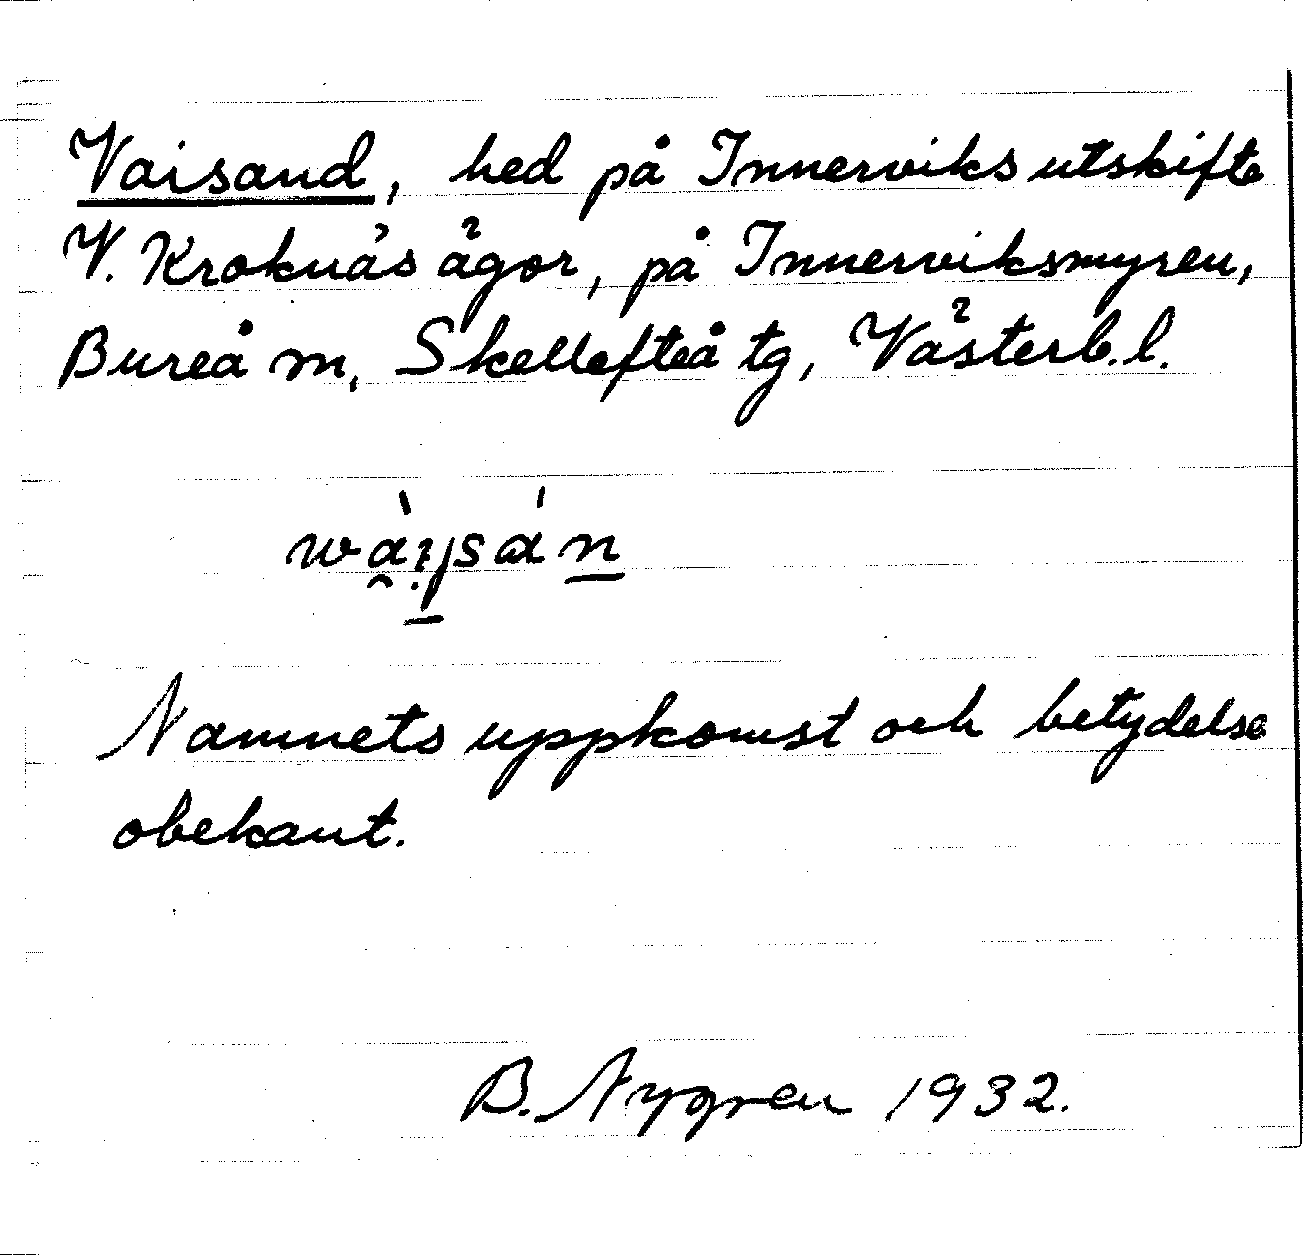 Vaisand, hed på Innerviks utskifte
V. Kroknäs ägor, på Innerviksmyren,
Bureå m, Skellefteå tg, Västerb.l.
Namnets uppkomst och betydelse
obekant.
B. Nygren 1932.